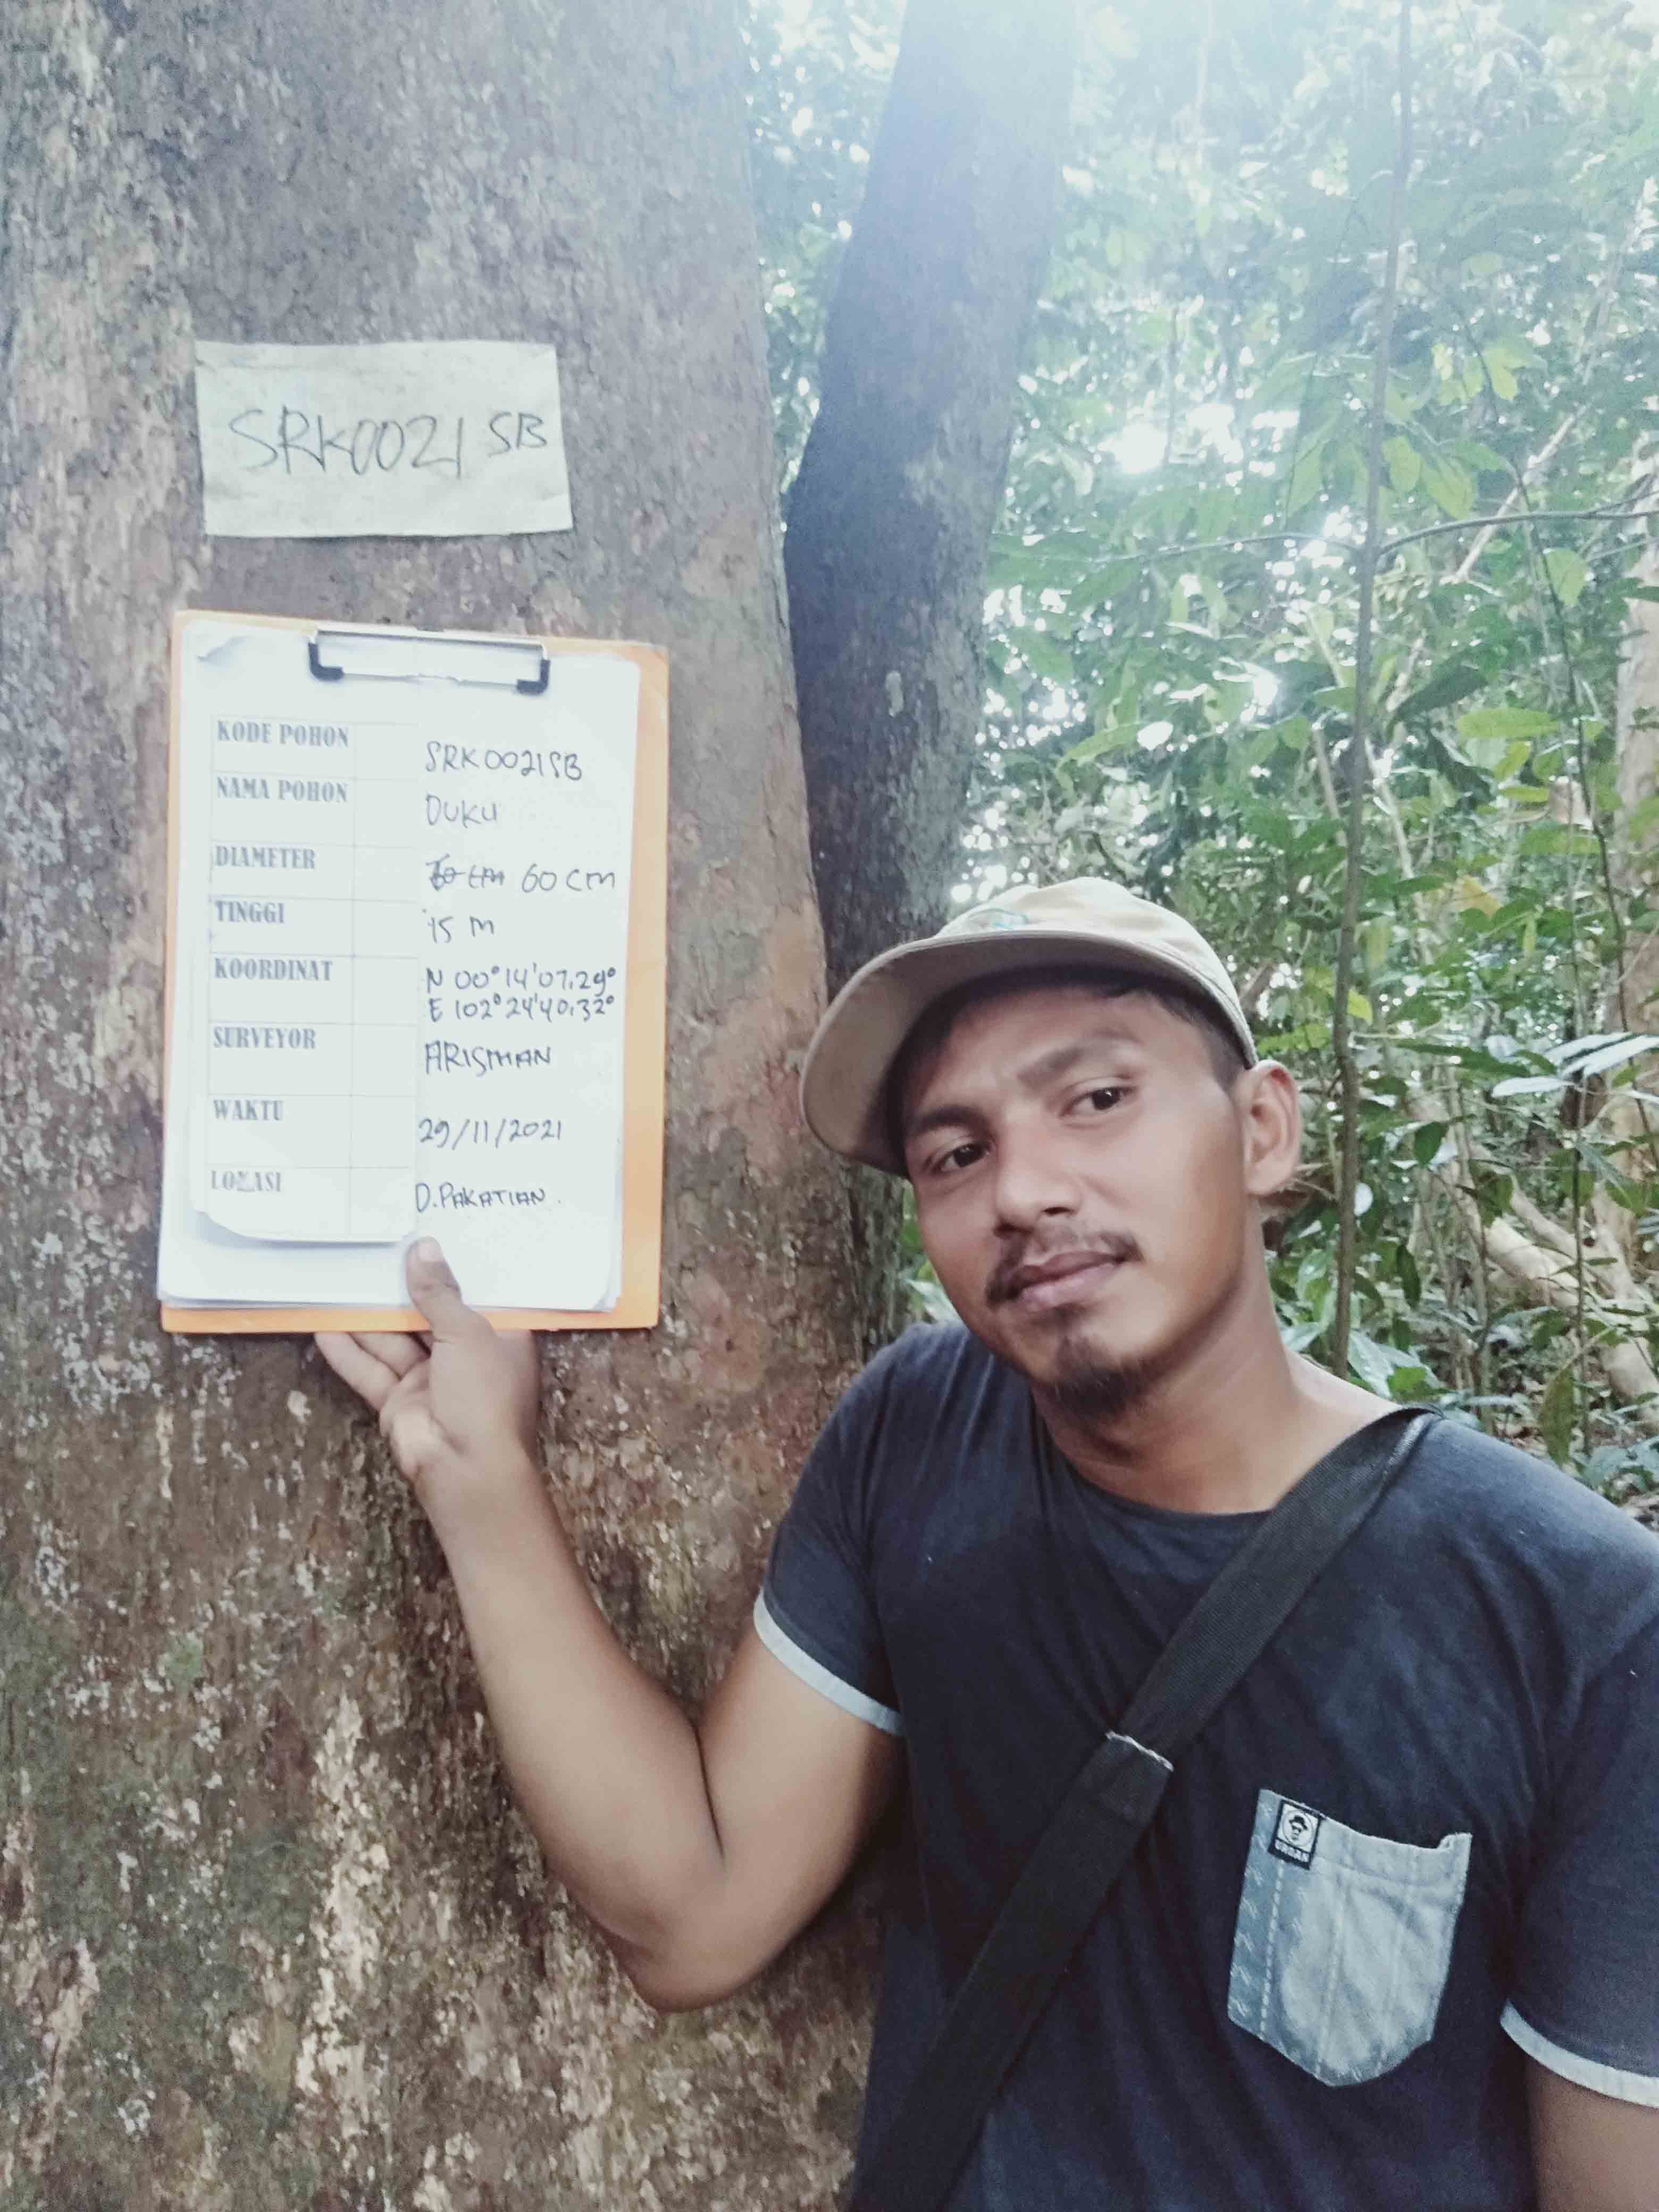 SRK0021 SB
KODE POHON SRK0021SB
NAMA POHON DUKU
DIAMETER 70 cm 60 cm
TINGGI 15 M
KOORDINAT N 00°14'07,29°
E 102°24'40,32°
SURVEYOR ARISMAN
WAKTU 29/11/2021
LOKASI D.PAKATIAN.
URBAN